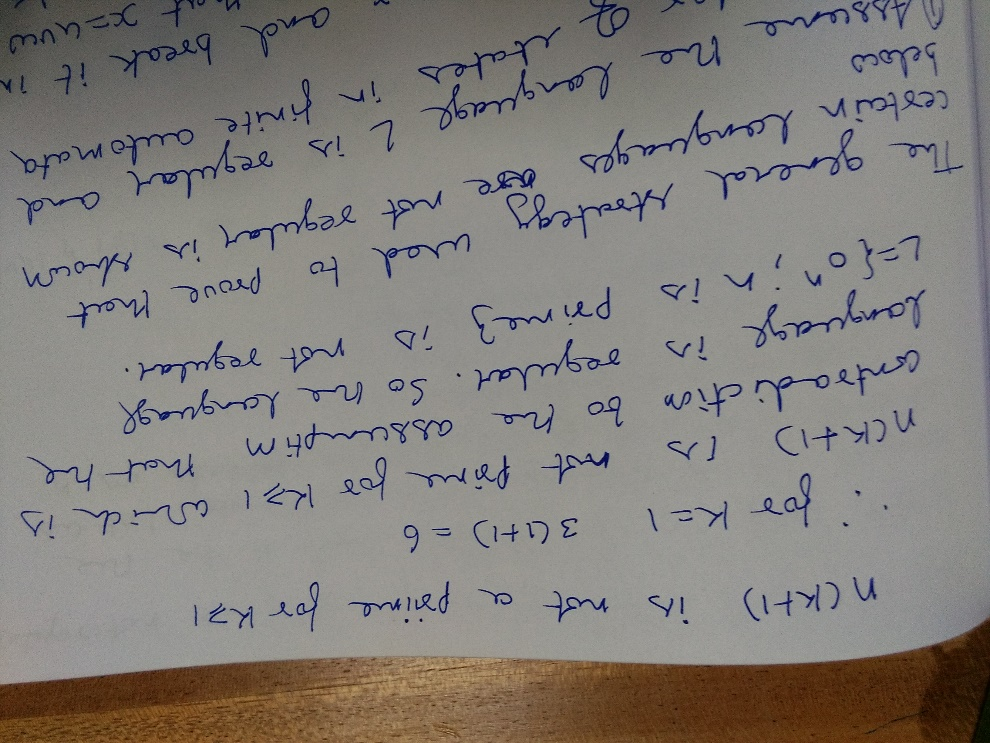 n(k+1) is not a prime for k≥1
∴ for k=1 3(1+1) = 6
n(k+1) is not prime for k≥1 which is
contradiction to the assumption that the
language is regular. So the language
L={0ⁿ ; n is prime} is not regular.
The general strategy used to prove that
certain languages are not regular is shown
below
① Assume the language L is regular and
of states in finite automata
and break it in
that x=uvw